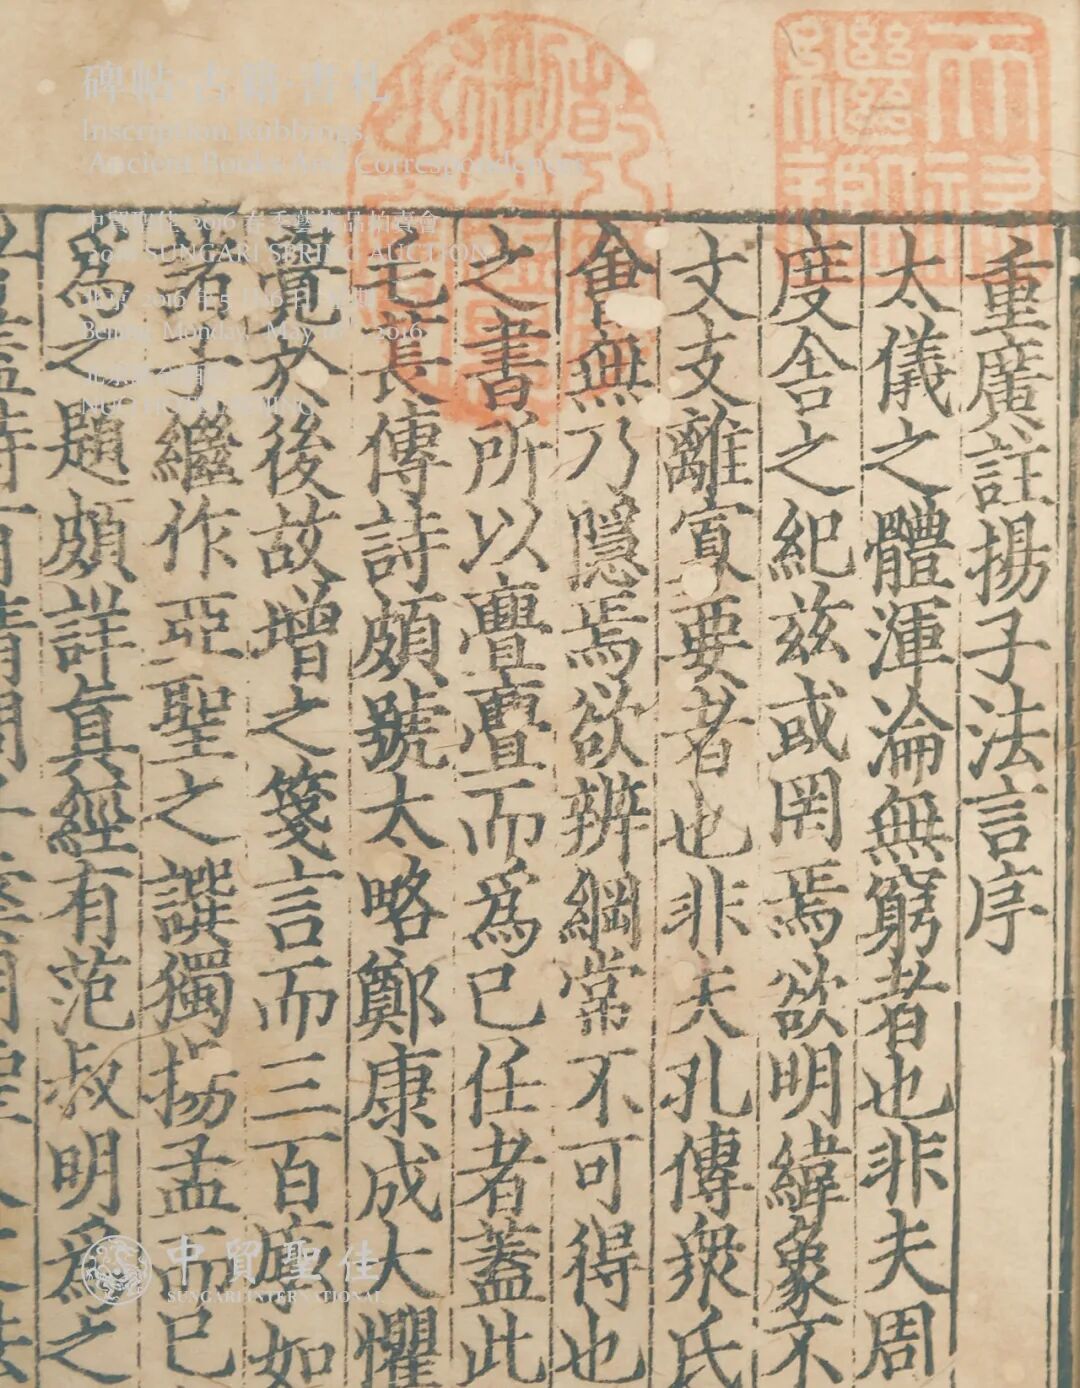 重廣註揚子法言序
太儀之體渾淪無窮者也非夫周
度舍之紀茲或罔焉欲明緯象不
文支離寔要者也非夫孔傳衆氏
會無乃隱焉欲辨綱常不可得也
之書所以亹亹而為已任者蓋此
毛萇傳詩頗號太略鄭康成大懼
覽於後故增之箋言而三百廣如
諸子繼作亞聖之譔獨揚孟而已
為之題頗詳真經有范叔明為之
碑帖·古籍·書札
Inscription Rubbings,
Ancient Books And Correspondences
中貿聖佳 2016 春季藝術品拍賣會
2016 SUNGARI SPRING AUCTION
Monday, May 2016
中貿聖佳
SUNGARI INTERNATIONAL